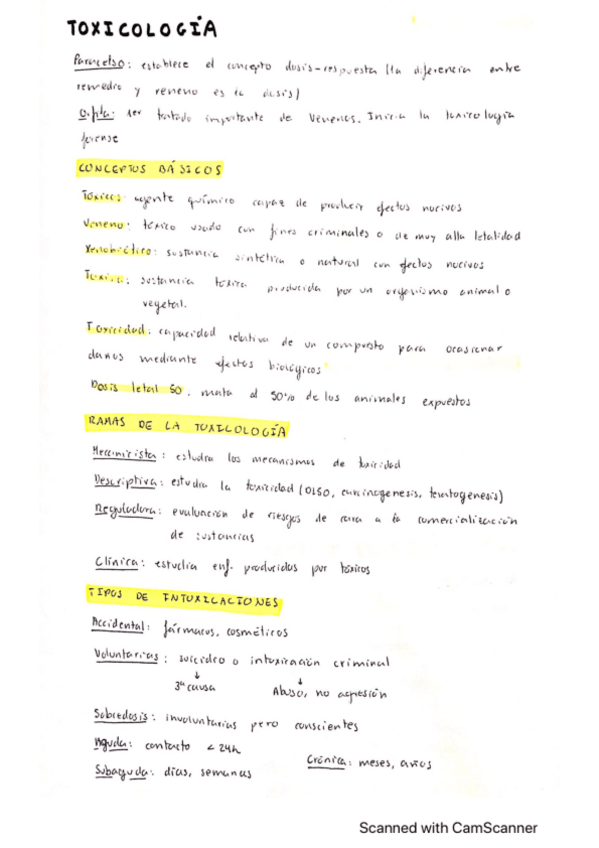 TOXICOLOGÍA
Paracelso: establece el concepto dosis-respuesta (la diferencia entre
remedio y veneno es la dosis)
Orfila: 1er tratado importante de venenos. Inicia la toxicología
forense
CONCEPTOS BÁSICOS
Tóxico: agente químico capaz de producir efectos nocivos
Veneno: tóxico usado con fines criminales o de muy alta letalidad
Xenobiótico: sustancia sintética o natural con efectos nocivos
Toxina: sustancia tóxica producida por un organismo animal o
vegetal.
Toxicidad: capacidad relativa de un compuesto para ocasionar
daños mediante efectos biológicos
Dosis letal 50: mata al 50% de los animales expuestos
RAMAS DE LA TOXICOLOGÍA
Mecanicista: estudia los mecanismos de toxicidad
Descriptiva: estudia la toxicidad (DL50, carcinogenesis, teratogenesis)
Reguladora: evaluación de riesgos de cara a la comercialización
de sustancias
Clínica: estudia enf. producidas por tóxicos
TIPOS DE INTOXICACIONES
Accidental: fármacos, cosméticos
Voluntarias: suicidio o intoxicación criminal
↓ ↓
3ª causa Abuso, no agresión
Sobredosis: involuntarias pero conscientes
Aguda: contacto < 24h
Crónica: meses, años
Subaguda: días, semanas
Scanned with CamScanner